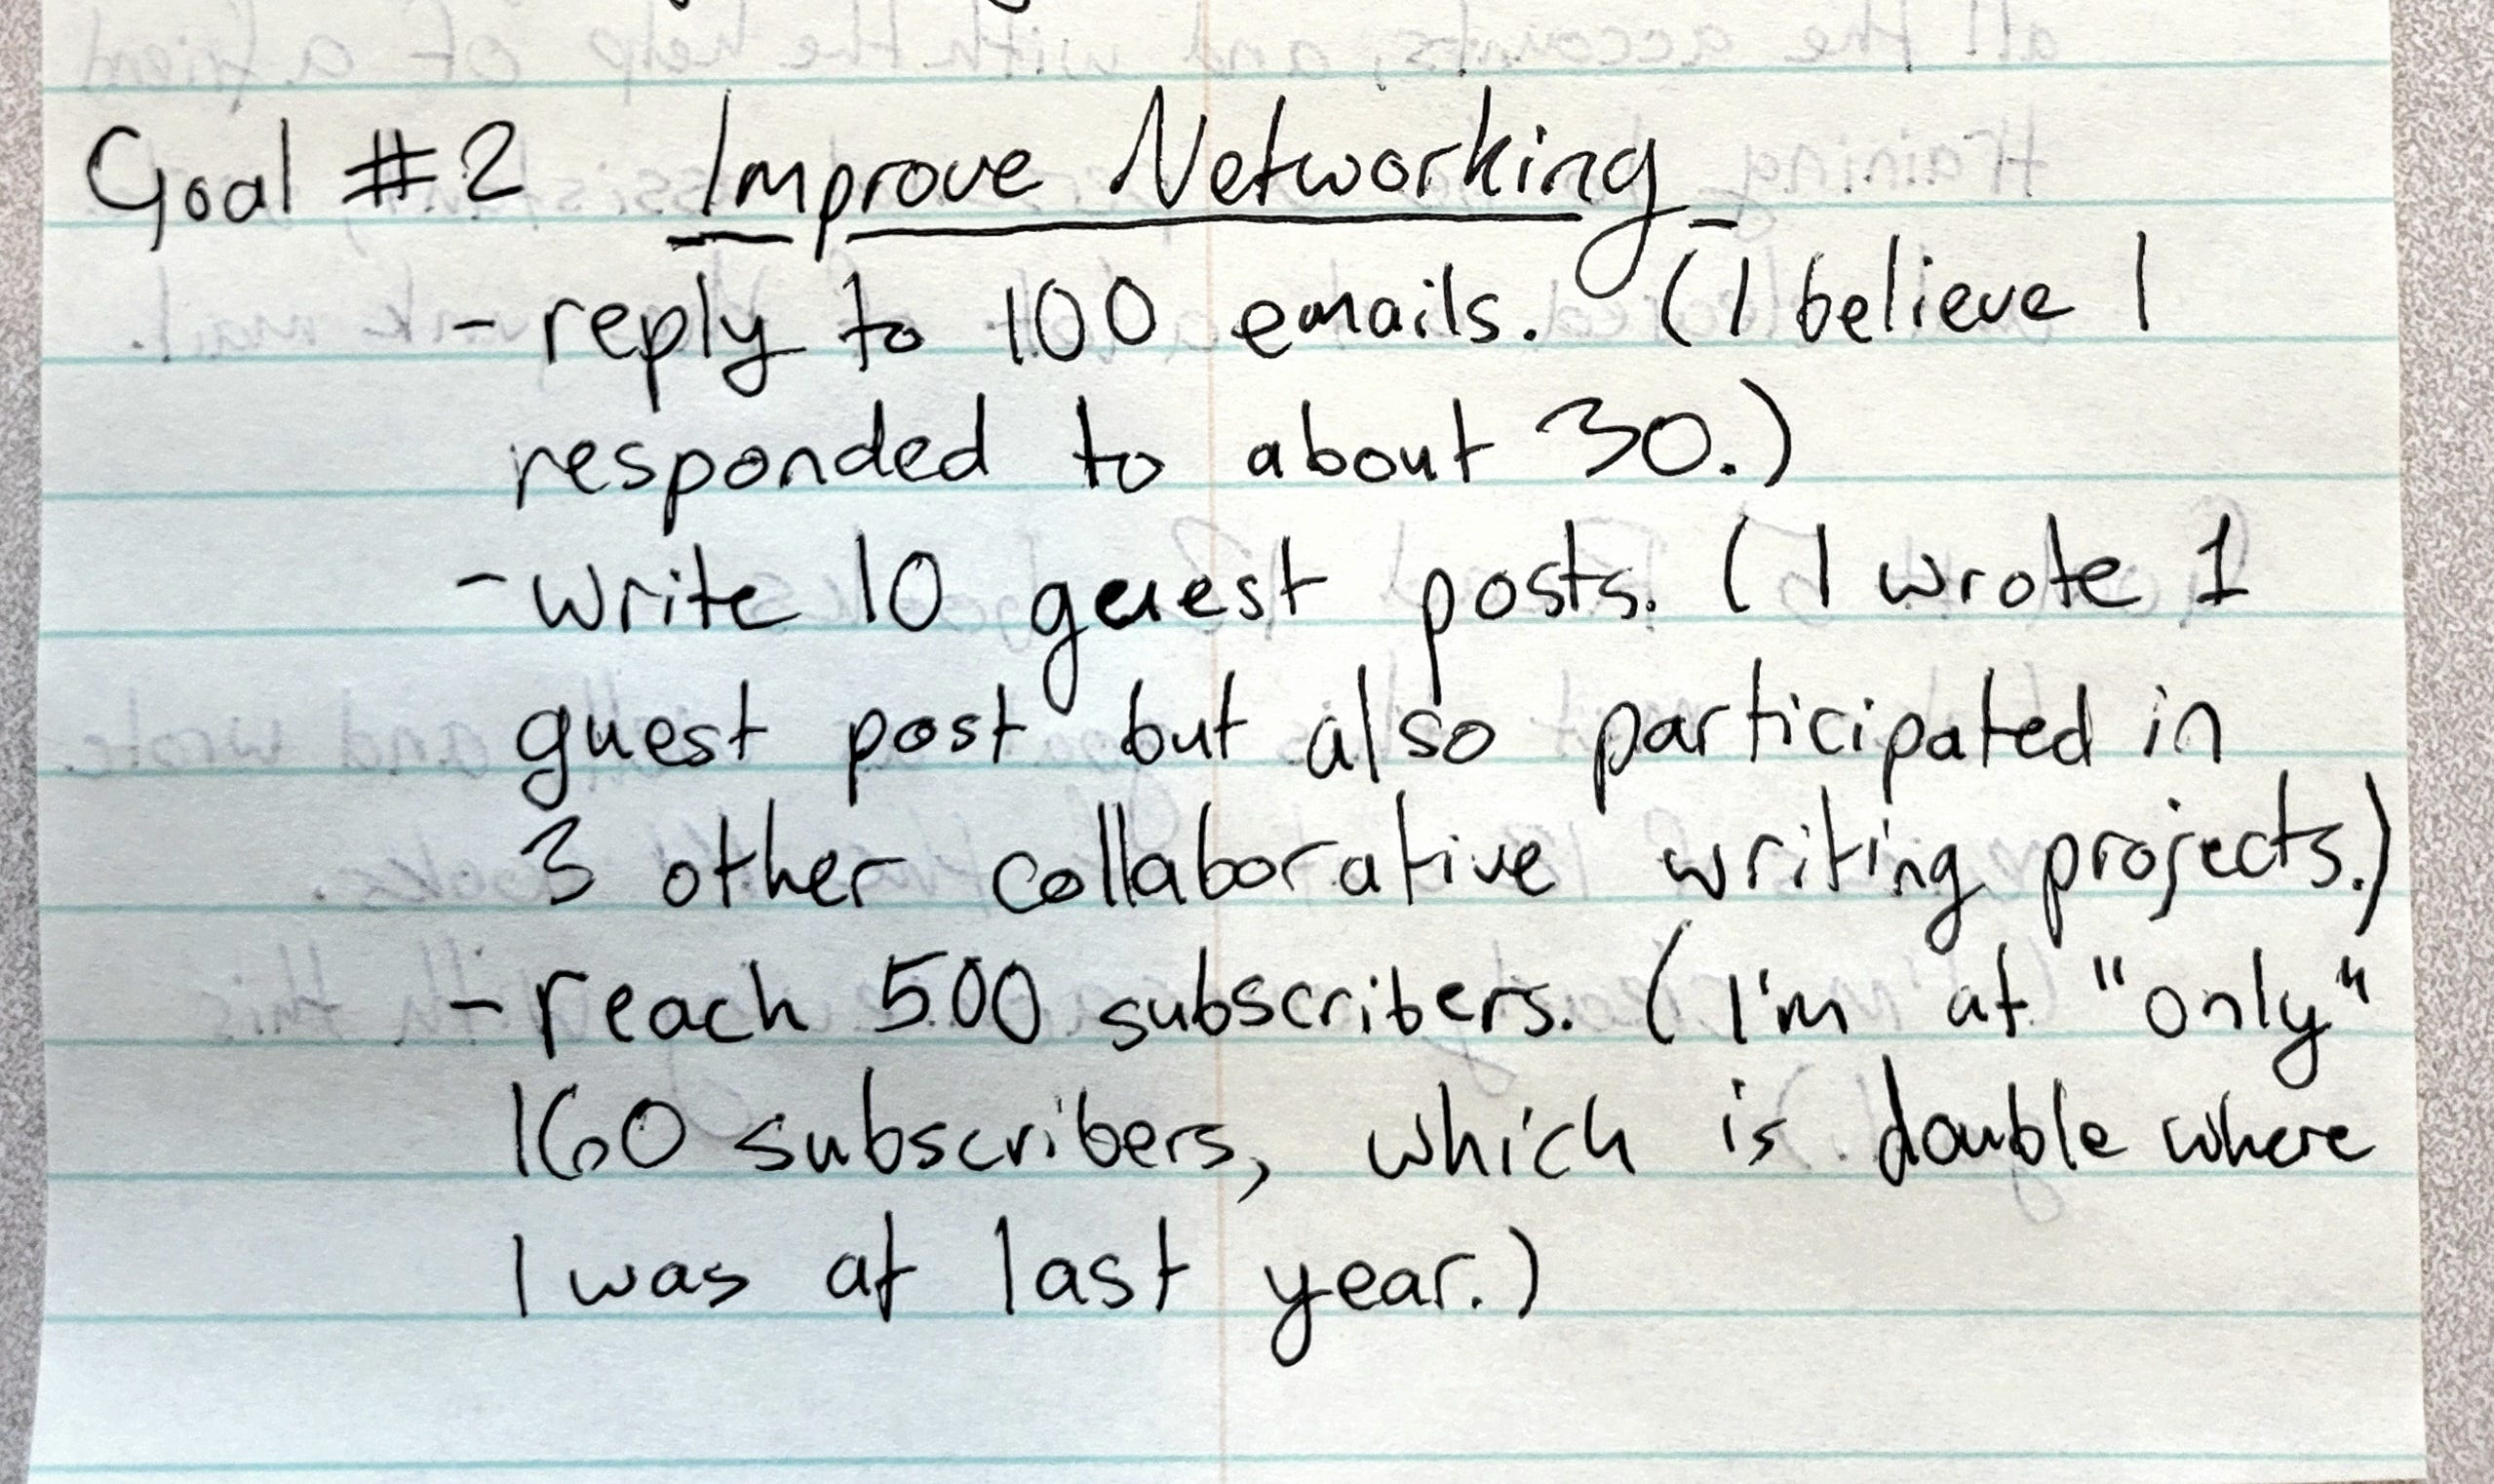 Goal #2 Improve Networking
- reply to 100 emails. (I believe I
responded to about 30.)
- write 10 guest posts. (I wrote 1
guest post but also participated in
3 other collaborative writing projects.)
- reach 500 subscribers. (I'm at "only"
160 subscribers, which is double where
I was at last year.)